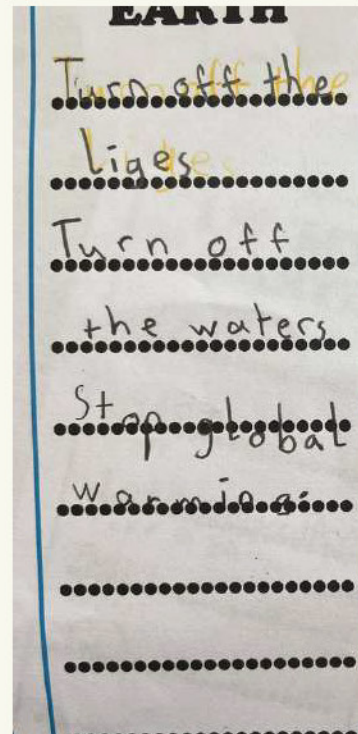 EARTH
Turn off the
liges
Turn off
the waters
Stop global
warming.